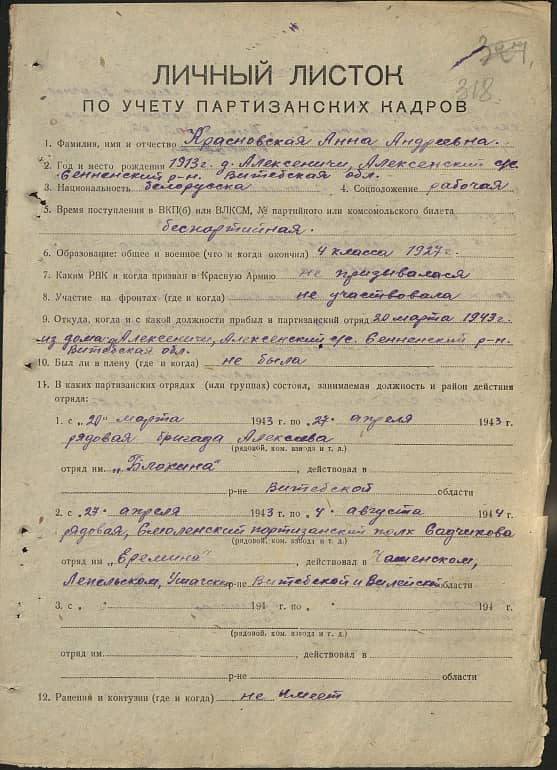 318.
ЛИЧНЫЙ ЛИСТОК
ПО УЧЕТУ ПАРТИЗАНСКИХ КАДРОВ
1. Фамилия, имя и отчество Красновская Анна Андреевна.
2. Год и место рождения 1913 г. д. Алексеничи, Алексенский с/с.
Сенненский р-н. Витебская обл.
3. Национальность белорусска 4. Соцположение рабочая
5. Время поступления в ВКП(б) или ВЛКСМ, № партийного или комсомольского билета
беспартийная.
6. Образование: общее и военное (что и когда окончил) 4 класса 1927 г.
7. Каким РВК и когда призван в Красную Армию не призывалася
8. Участие на фронтах (где и когда) не участвовала
9. Откуда, когда и с какой должности прибыл в партизанский отряд 20 марта 1943 г.
из дома д Алексеничи, Алексенский с/с. Сенненский р-н.
Витебская обл.
10. Был ли в плену (где и когда) не была
11. В каких партизанских отрядах (или группах) состоял, занимаемая должность и район действия
отряда:
1. с „20" марта 1943 г. по „27" апреля 1943 г.
рядовая бригада Алексеева
(рядовой, ком. взвода и т. д.)
отряд им. „Блохина" , действовал в
р-не Витебской области
2. с „27" апреля 1943 г. по „4" августа 1944 г.
рядовая, Смоленский партизанский полк Садчикова
(рядовой, ком. взвода и т. д.)
отряд им. „Еремина" , действовал в Чашенском,
Лепельском, Ушачск р-не Витебской и Вилейской области
3. с „ 194 г. по „ 194 г.
(рядовой, ком. взвода и т. д.)
отряд им. , действовал в
р-не области
12. Ранений и контузии (где и когда) не имеет